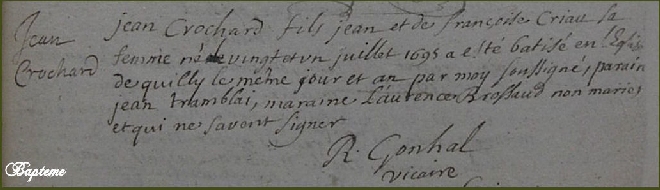 Jean
Crochard
jean Crochard fils jean et de françoise Criau sa
femme né le vingt et un juillet 1695 a esté batisé en l'Eglis
de quilly le même jour et an par moy soussigné, parain
jean tramblai, maraine Laurence Brossaud non mariés
et qui ne savent signer
R. Gonhal
vicaire
Bapteme